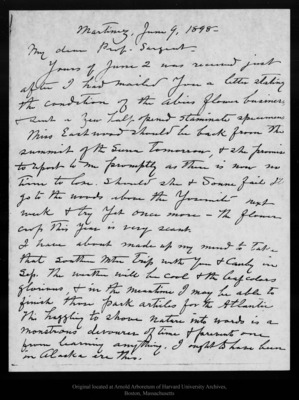 Martinez, June 9, 1898.
My dear Prof. Sargent
Yours of June 2 was received just
after I had mailed you a letter stating
the condition of the abies flower business,
& sent a few half spend staminate specimens
Miss Eastwood should be back from the
summit of the Sierra tomorrow, & she promise
to report to me promptly as there is now no
time to lose. Should she & Sonne fail Ill
go to the woods above the Yosemite next
week & try yet once more - The flower
crop this year is very scant.
I have about made up my mind to take
that South Mtn trip with you & Canby in
Sep. The weather will be cool & the leaf colors
glorious, & in the meantime I may be able to
finish those Park articles for the Atlantic
The haggling to shove Nature into words is a
monstrous devourer of time & prevents one
from learning anything. I ought to have been
in Alaska ere this.
Original located at Arnold Arboretum of Harvard University Archives,
Boston, Massachusetts